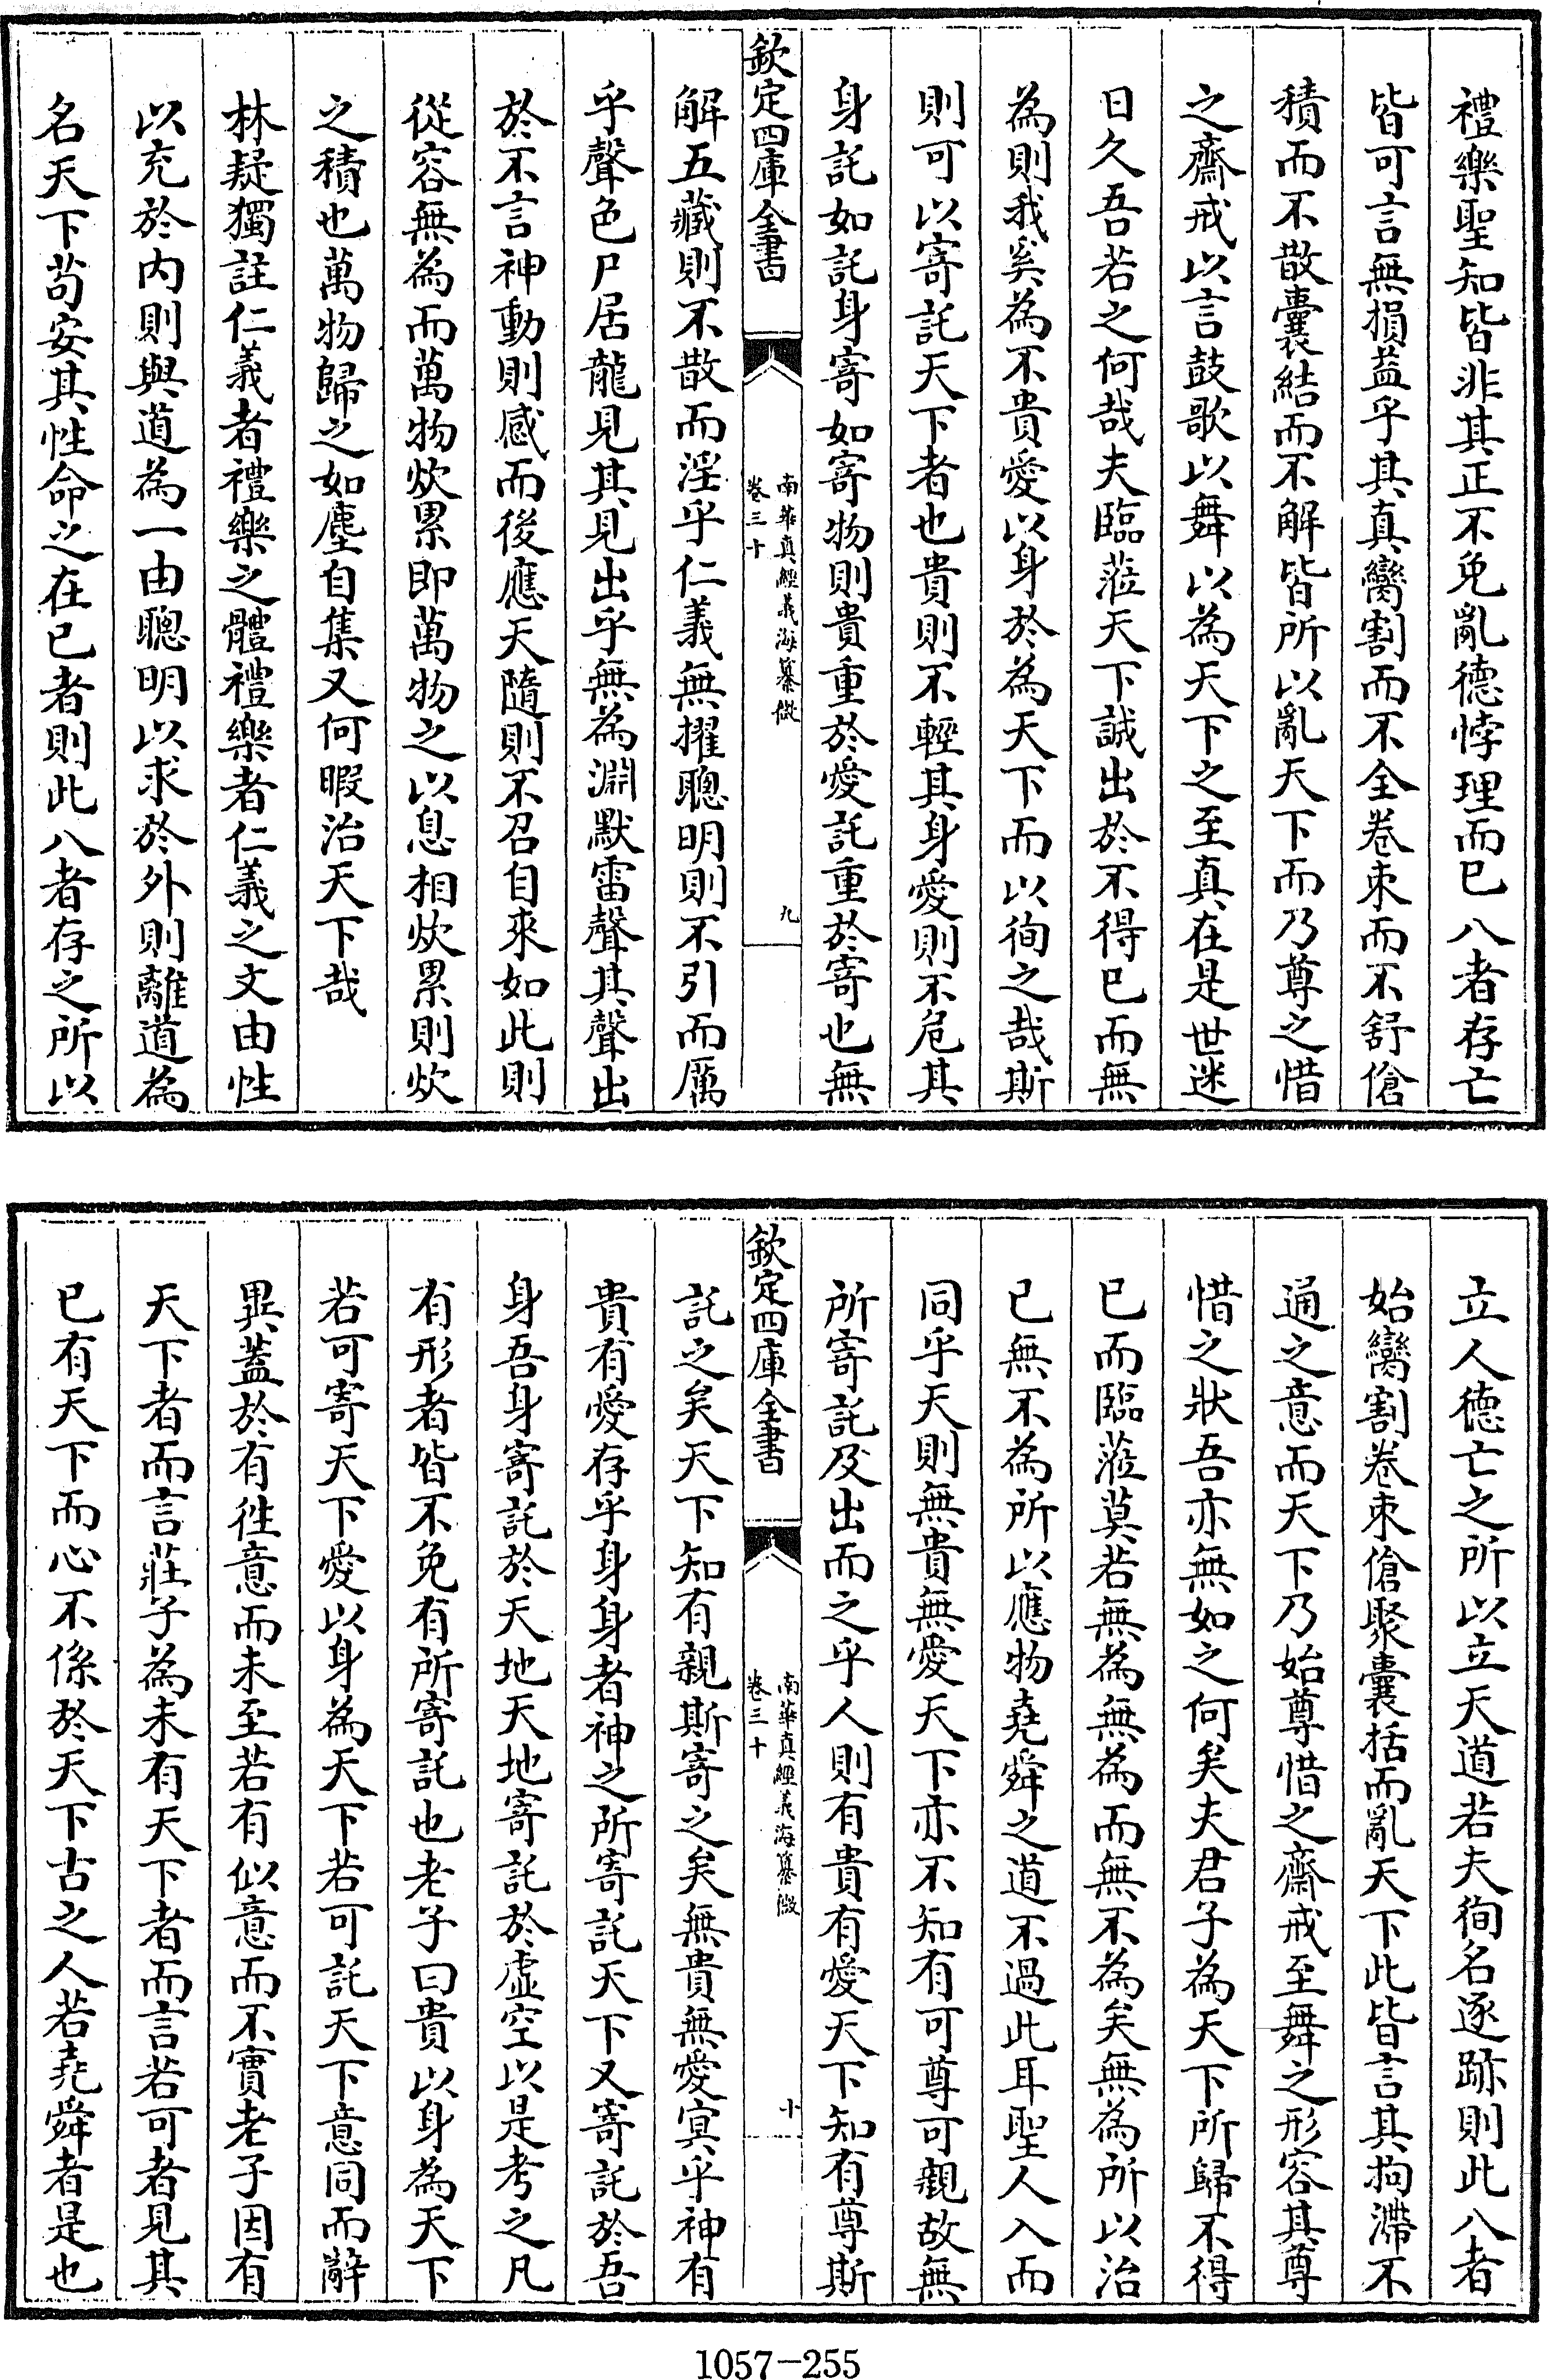 禮樂聖知皆非其正不免亂德悖理而已八者存亡
皆可言無損益乎其真臠割而不全卷束而不舒傖
積而不散囊結而不解皆所以亂天下而乃尊之惜
之齋戒以言鼓歌以舞以為天下之至真在是世迷
日久吾若之何哉夫臨蒞天下誠出於不得已而無
為則我奚為不貴愛以身於為天下而以徇之哉斯
則可以寄託天下者也貴則不輕其身愛則不危其
身託如託身寄如寄物則貴重於愛託重於寄也無
欽定四庫全書
南華真經義海纂微
卷三十
九
解五藏則不散而淫乎仁義無擢聰明則不引而厲
乎聲色尸居龍見其見出乎無為淵默雷聲其聲出
於不言神動則感而後應天隨則不召自來如此則
從容無為而萬物炊累即萬物之以息相炊累則炊
之積也萬物歸之如塵自集又何暇治天下哉
林疑獨註仁義者禮樂之體禮樂者仁義之文由性
以充於内則與道為一由聰明以求於外則離道為
名天下苟安其性命之在已者則此八者存之所以
立人德亡之所以立天道若夫徇名逐跡則此八者
始臠割卷束傖聚囊括而亂天下此皆言其拘滯不
通之意而天下乃始尊惜之齋戒至舞之形容其尊
惜之狀吾亦無如之何矣夫君子為天下所歸不得
已而臨蒞莫若無為無為而無不為矣無為所以治
已無不為所以應物堯舜之道不過此耳聖人入而
同乎天則無貴無愛天下亦不知有可尊可親故無
所寄託及出而之乎人則有貴有愛天下知有尊斯
欽定四庫全書
南華真經義海纂微
卷三十
十
託之矣天下知有親斯寄之矣無貴無愛冥乎神有
貴有愛存乎身身者神之所寄託天下又寄託於吾
身吾身寄託於天地天地寄託於虛空以是考之凡
有形者皆不免有所寄託也老子曰貴以身為天下
若可寄天下愛以身為天下若可託天下意同而辭
異蓋於有徃意而未至若有似意而不實老子因有
天下者而言莊子為未有天下者而言若可者見其
已有天下而心不係於天下古之人若堯舜者是也
1057-255